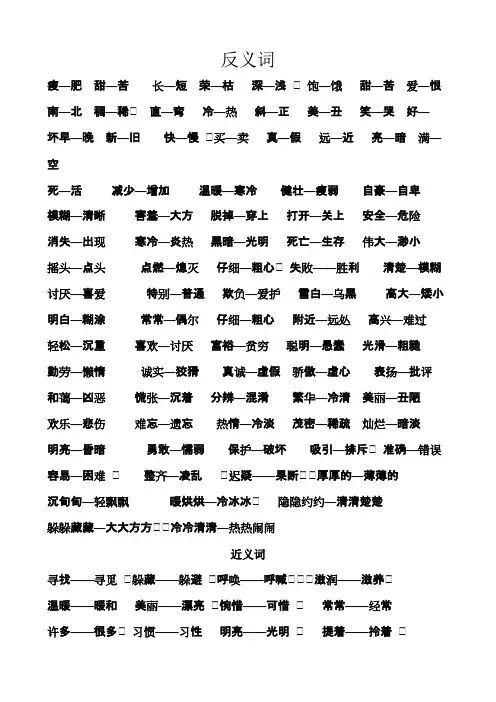 反义词
瘦—肥 甜—苦 长—短 荣—枯 深—浅 饱—饿 甜—苦 爱—恨
南—北 稠—稀 直—弯 冷—热 斜—正 美—丑 笑—哭 好—
坏早—晚 新—旧 快—慢 买—卖 真—假 远—近 亮—暗 满—
空
死—活 减少—增加 温暖—寒冷 健壮—瘦弱 自豪—自卑
模糊—清晰 害羞—大方 脱掉—穿上 打开—关上 安全—危险
消失—出现 寒冷—炎热 黑暗—光明 死亡—生存 伟大—渺小
摇头—点头 点燃—熄灭 仔细—粗心 失败——胜利 清楚—模糊
讨厌—喜爱 特别—普通 欺负—爱护 雪白—乌黑 高大—矮小
明白—糊涂 常常—偶尔 仔细—粗心 附近—远处 高兴—难过
轻松—沉重 喜欢—讨厌 富裕—贫穷 聪明—愚蠢 光滑—粗糙
勤劳—懒惰 诚实—狡猾 真诚—虚假 骄傲—虚心 表扬—批评
和蔼—凶恶 慌张—沉着 分辨—混淆 繁华—冷清 美丽—丑陋
欢乐—悲伤 难忘—遗忘 热情—冷淡 茂密—稀疏 灿烂—暗淡
明亮—昏暗 勇敢—懦弱 保护—破坏 吸引—排斥 准确—错误
容易—困难 整齐—凌乱 迟疑——果断 厚厚的—薄薄的
沉甸甸—轻飘飘 暖烘烘—冷冰冰 隐隐约约—清清楚楚
躲躲藏藏—大大方方 冷冷清清—热热闹闹
近义词
寻找——寻觅 躲藏——躲避 呼唤——呼喊 滋润——滋养
温暖——暖和 美丽——漂亮 惋惜——可惜 常常——经常
许多——很多 习惯——习性 明亮——光明 提着——拎着